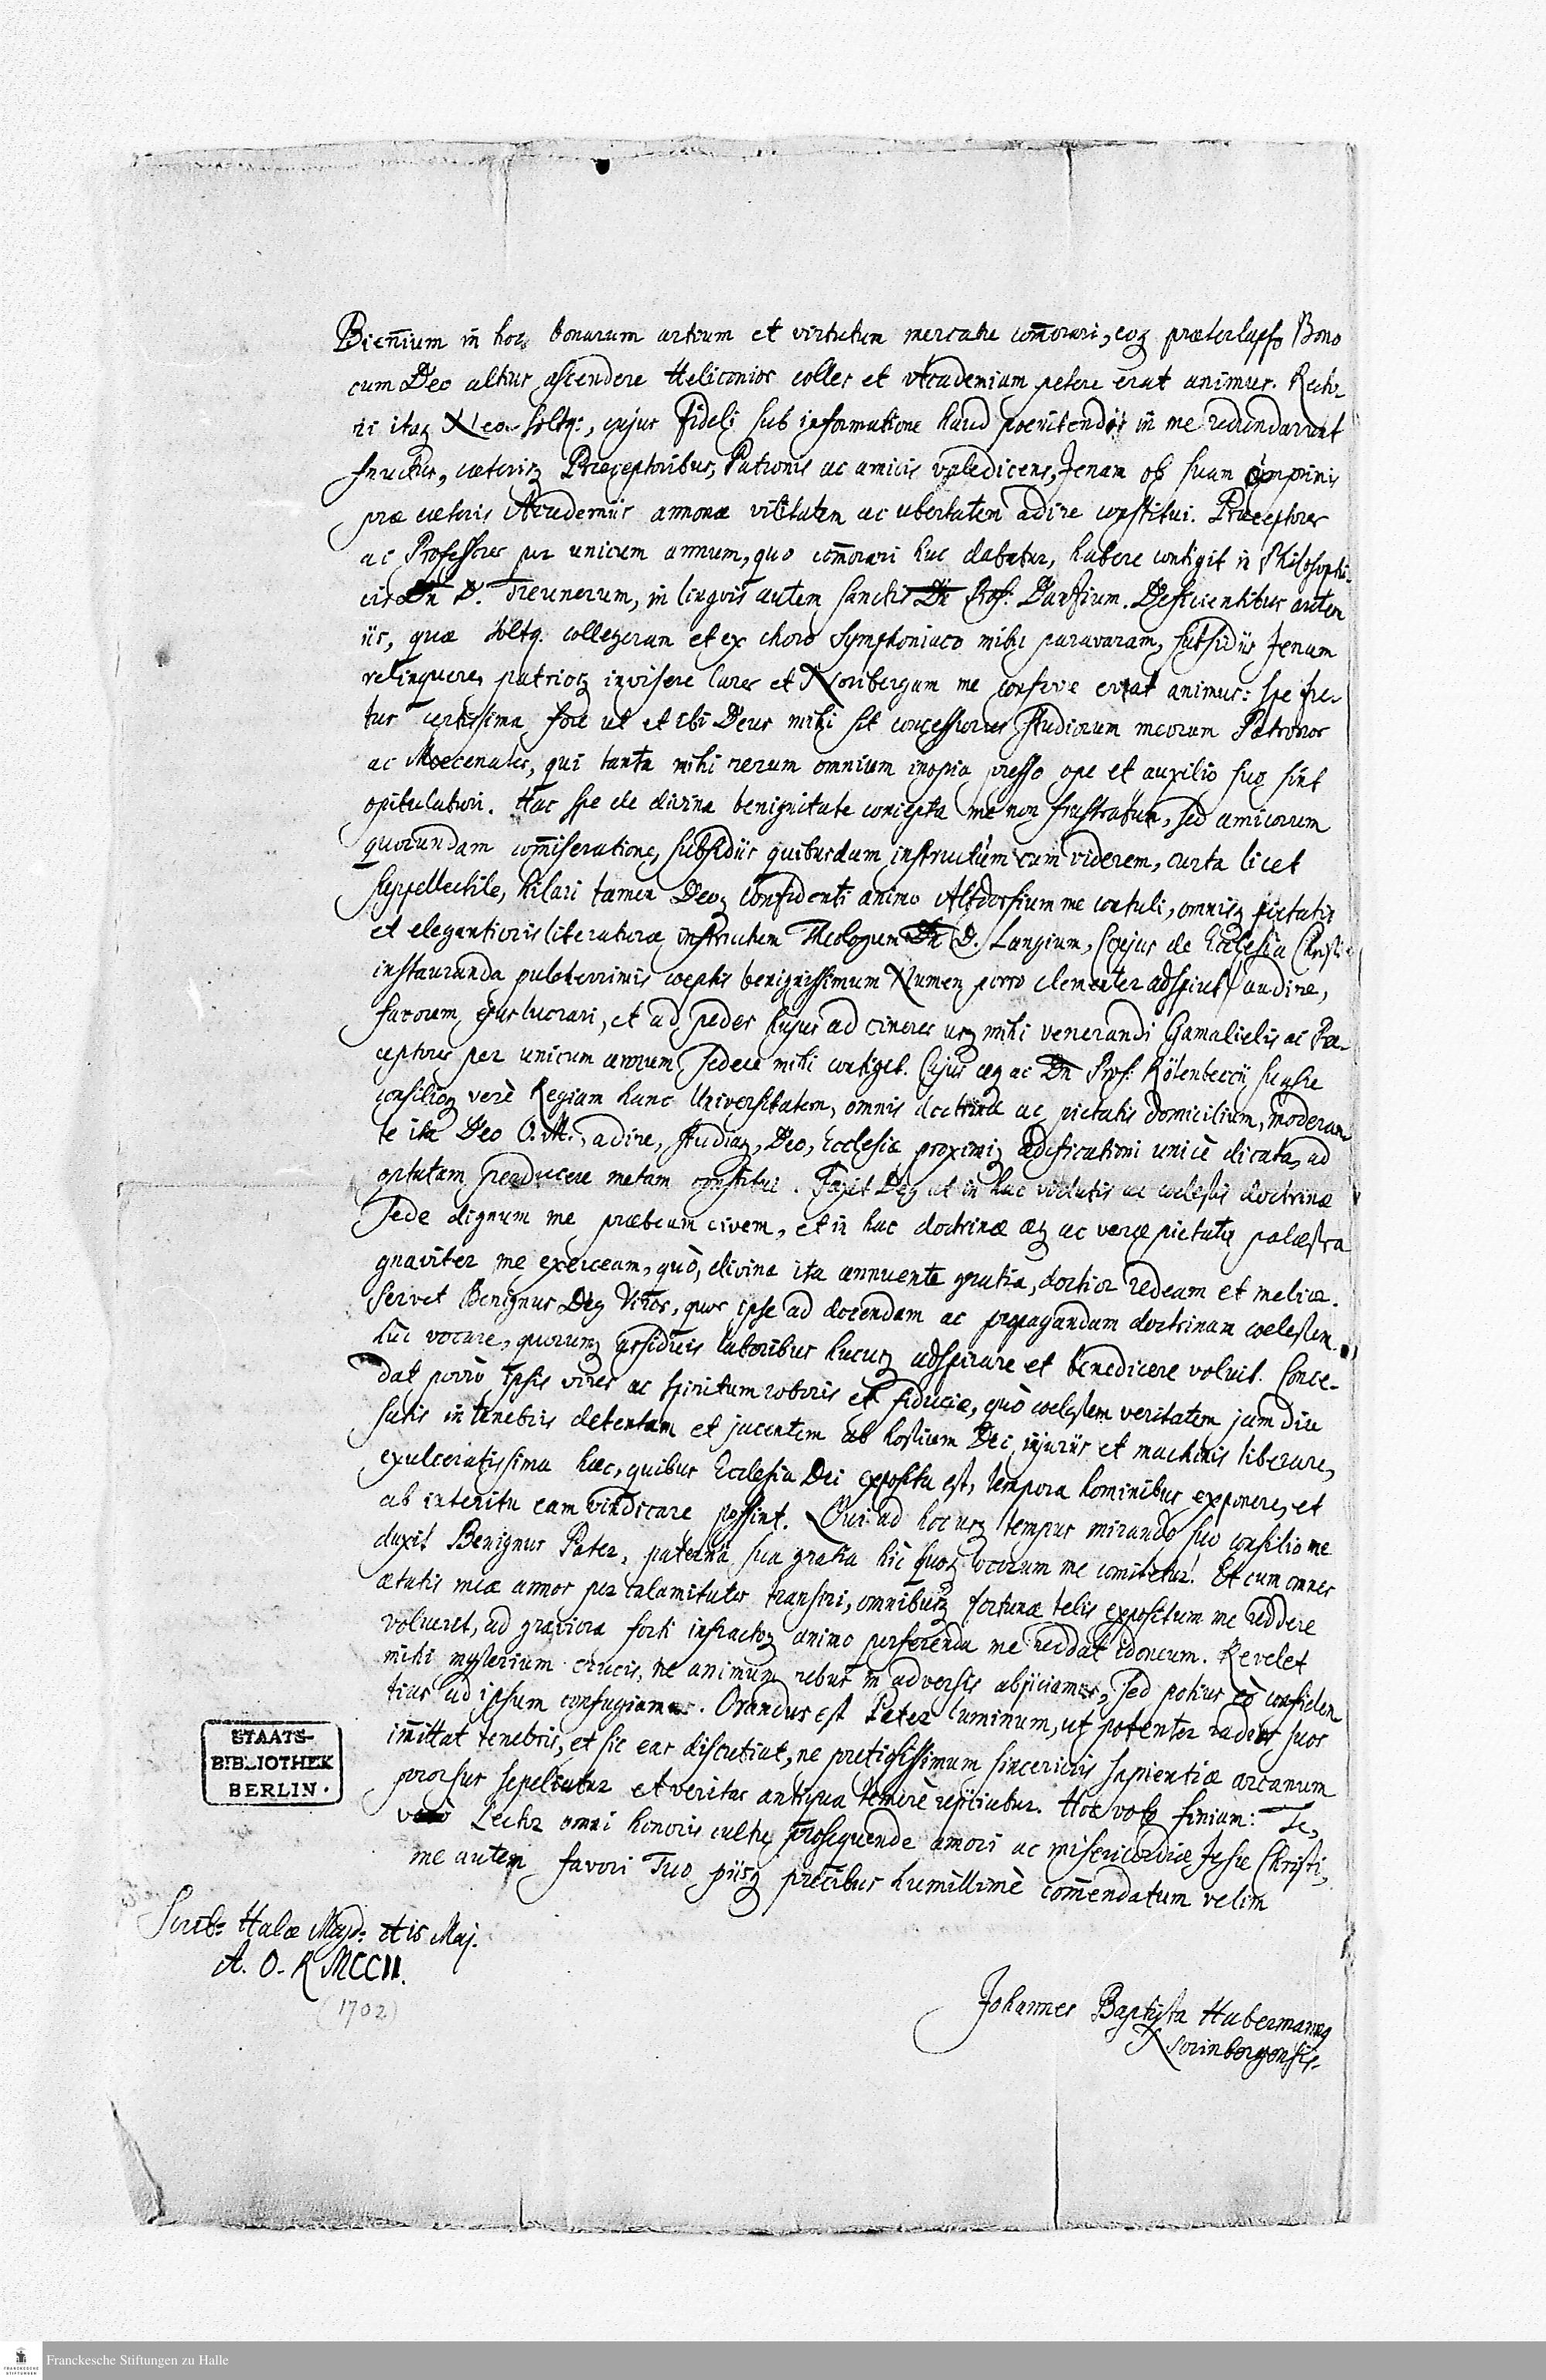 Bieñium in hoc bonarum artium et virtutum mercatu com̃orari, eoq₃ præterlapso Bono
cum Deo altius ascendere Heliconios colles et Academiam petere erat animus. Recto-
ri itaq₃ Neo-Soltq:, cujus fideli sub informatione haud poenitendi in me redundarunt
fructus, cæterisq₃ Præceptoribus, Patronis ac amicis valedicens, Jenam ob suam imprimis
præ cæteris Academiis annonæ vilitatem ac ubertatem adire constitui. Præceptores
ac Professores per unicum annum, quo com̃orari huc dabatur, habere contigit in Philosophi-
cis Dn̄ D. Treunerum, in linguis autem sanctis Dn̄ Prof. Danzium. Deficientibus autem
iis, quæ Soltq. collegeram et ex choro Symphoniaco mihi paravaram, subsidiis Jenam
relinquere, patriosq₃ invisere lares et Noribergam me conferre erat animus: spe fre-
tus certissima fore ut et ibi Deus mihi sit concessurus studiorum meorum Patronos
ac Moecenates, qui tanta mihi rerum omnium inopia presso ope et auxilio suo sint
opitulaturi. Hac spe de divina benignitate concepta me non frustratum, sed amicorum
quorundam com̃iseratione, subsidiis quibusdam instructum cum viderem, curta licet
suppellectile, hilari tamen Deoq₃ confidenti animo Altdorfium me contuli, omnisq₃ pietatis
et elegantioris literaturæ instructum Theologum Dn̄ D. Langium, (cujus de Ecclesia Christi
instauranda pulcherrimis coeptis benignissimum Numen porro clementer adspiret) audire,
favorem ejus lucrari, et ad pedes hujus ad cineres usq₃ mihi venerandi Gamalielis ac Præ-
ceptoris per unicum annum sedere mihi contigit. Cujus æq₃ ac Dn̄ Prof. Rötenbeccii suasu
consilioq₃ verè Regiam hanc Universitatem, omnis doctrinæ ac pietatis domicilium, moderan-
te ita Deo O. M., adire, studiaq₃, Deo, Ecclesiæ proximiq₃ ædificationi unicè dicata, ad
optatam perducere metam constitui. Faxit Deq₃ ut in hac virtutis ac coelestis doctrinæ
sede dignum me præbeam civem, et in hac doctrinæ æq₃ ac veræ pietatis palæstra
gnaviter me exerceam, quò, divina ita annuente gratia, doctior redeam et melior.
Servet Benignus Deq₃ Viros, quos ipse ad docendam ac propagandam doctrinam coelestem
huc vocare, quorumq₃ assiduis laboribus hucusq₃ adspirare et benedicere voluit. Conce-
dat porrò ipsis vires ac spiritum roboris et fiduciæ, quò coelestem veritatem jam diu
satis in tenebris detentam et jacentem ab hostium Dei injuriis et machinis liberare,
exulceratissima hæc, quibus Ecclesia Dei exposita est, tempora hominibus exponere, et
ab interitu eam vindicare possint. Qui ad hoc usq₃ tempus mirando suo consilio me
duxit Benignus Pater, paterna sua gratia hic quoq₃ locorum me comitetur! Et cum omnes
ætatis meæ annos per calamitates transiri, omnibusq₃ fortunæ telis expositum me reddere
volueret, ad graviora forti infractoq₃ animo perferenda me reddat idoneum. Revelet
mihi mysterium crucis, ne animum rebus in adversis abjiciamus, sed potius eò confiden-
tius ad ipsum confugiamus. Orandus est Pater luminum, ut potenter radios suos
im̃ittat tenebris, et sic eas discutiat, ne pretiosissimum sincerioris sapientiæ arcanum
prorsus sepeliatur et veritas antiqua temerè rejiciatur. Hoc voto finiam: Te,
verò Lector omni honoris cultu prosequende amori ac misericordiæ Jesu Christi,
me autem favori Tuo piisq₃ precibus humillimè com̃endatum velim
Scrib: Halæ Magd:
A. O. R MCCII.
(1702)
Johannes Baptista Habermannq₃
Norinbergensis.
STAATS-
BIBLIOTHEK
BERLIN.
Franckesche Stiftungen zu Halle
FRANCKESCHE
STIFTUNGEN